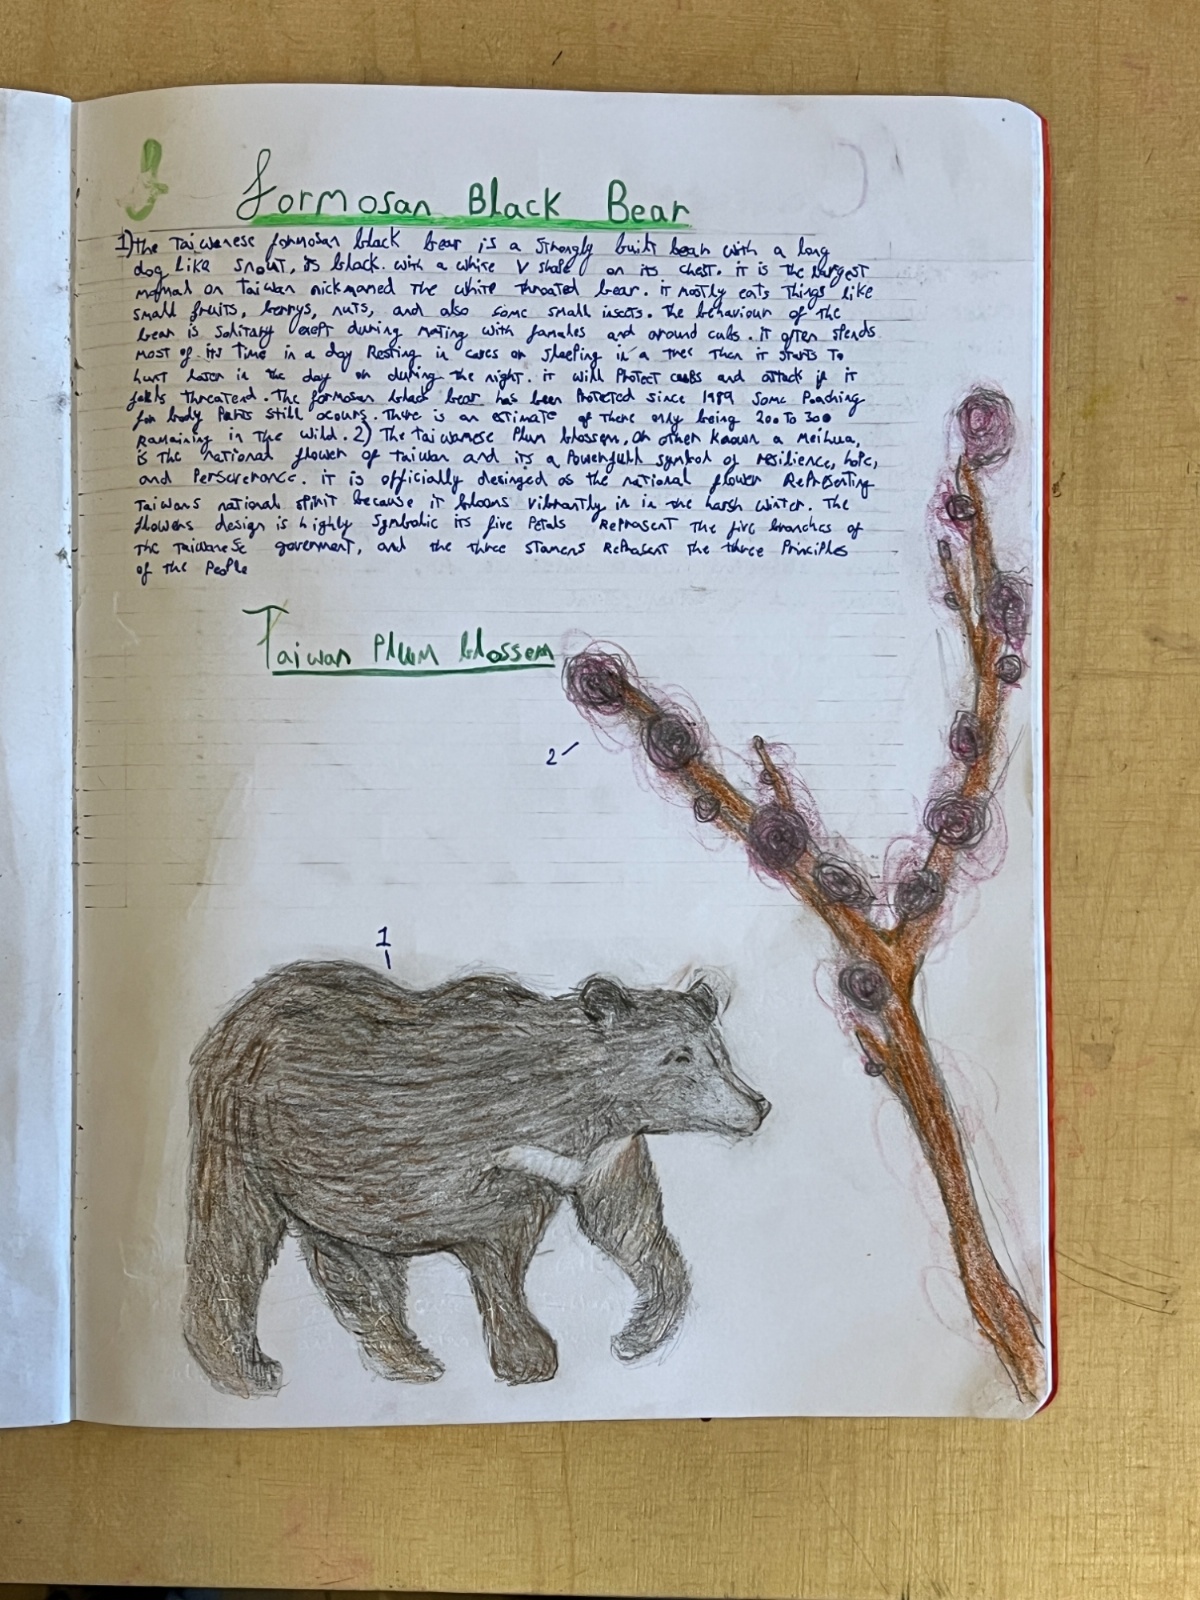 Formosan Black Bear
1) the Taiwanese formosan black bear is a strongly built bear with a long
dog like snout, its black. with a white V shape on its chest. it is the largest
mamal on Taiwan nicknamed The white throated bear. it mostly eats things like
small fruits, berrys, nuts, and also some small insects. The behaviour of the
bear is solitary exept during mating with females and around cubs. it often spends
most of its Time in a day Resting in caves or sleeping in a tree Then it starts To
hunt later in the day or during the night. it will Protect cubs and attack if it
feels threatend. The formosan black bear has been Protected since 1989 some Poaching
for body Parts still ocours. There is an estimate of there only being 200 To 300
Remaining in The wild. 2) The taiwanese Plum blossem, or other known a Meihua,
is the national flower of taiwan and its a Powerfull symbol of resilience, hope,
and Perserverance. it is officially desinged as the national flower Representing
Taiwans national spirit because it blooms vibrantly in in the harsh winter. The
flowers design is highly symbolic its five Petals Represent the five branches of
The Taiwanese goverment, and the three stamens Represent the three Principles
of The People
Taiwan Plum blossem
2
1